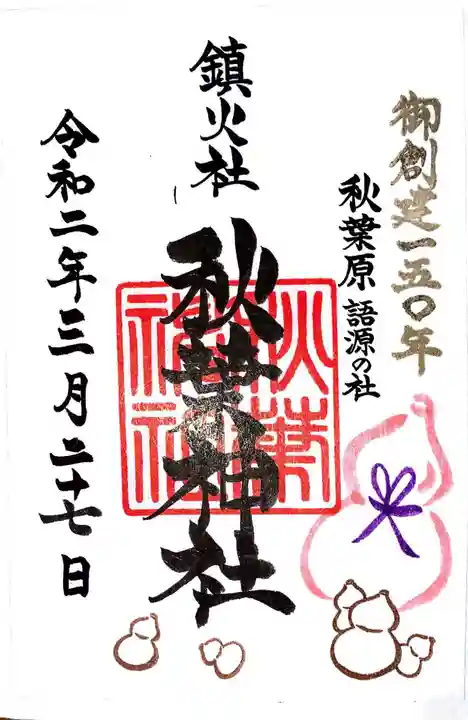 御創建一五〇年
秋葉原 語源の社
鎮火社
秋葉神社
秋葉神社
令和二年三月二十七日